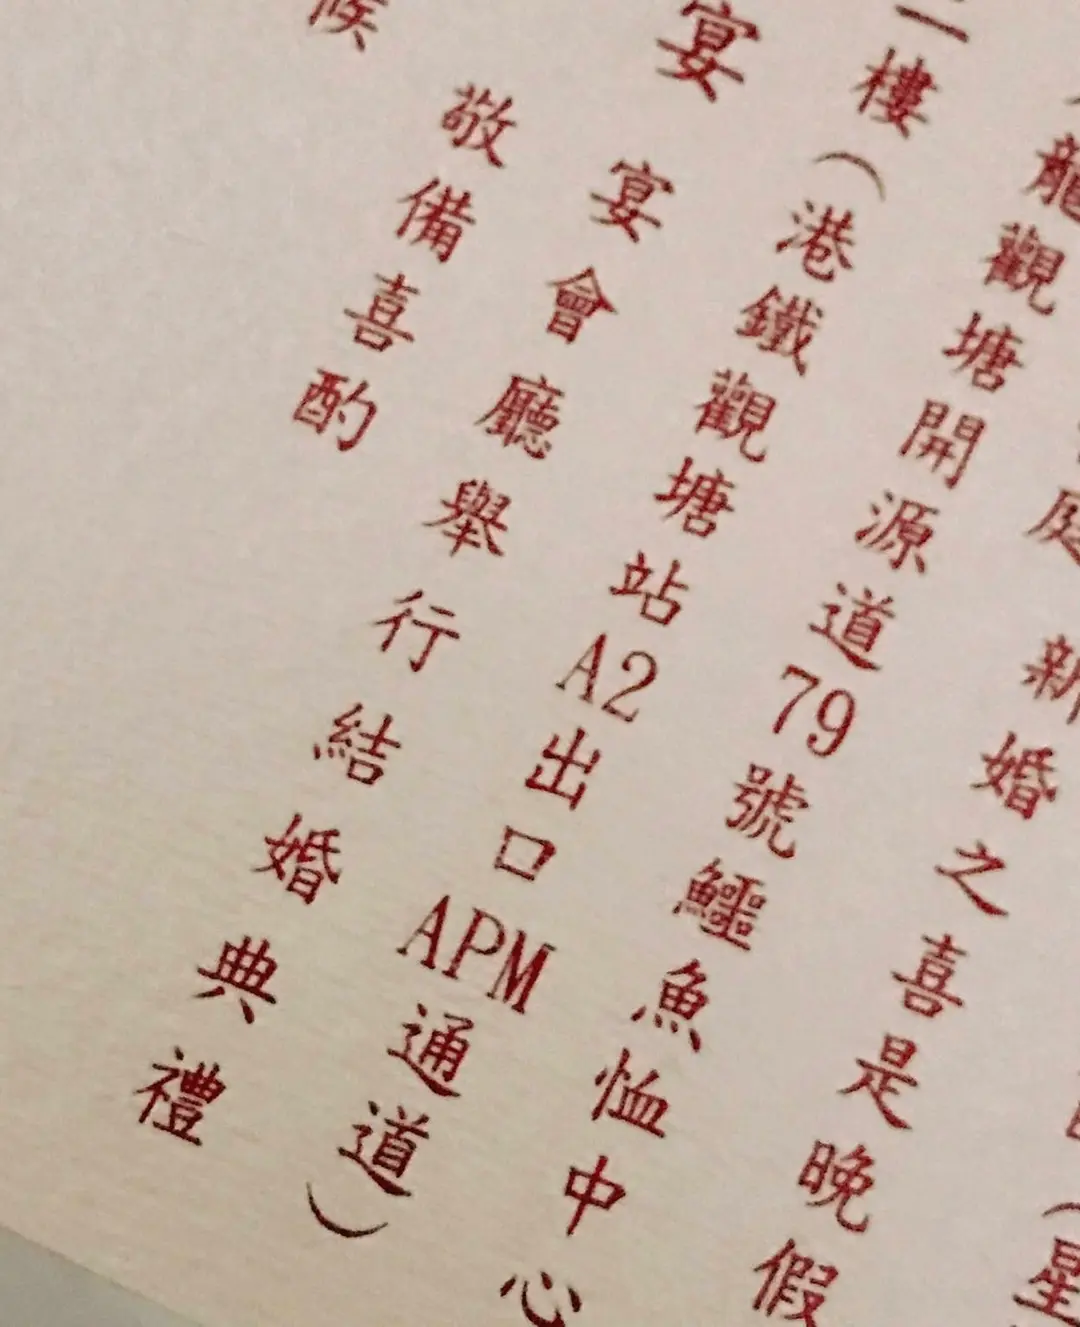 (星
庭 新婚之喜是晚假
龍觀塘開源道79號鱷魚恤中心
二樓(港鐵觀塘站A2出口APM通道)
宴 宴會廳舉行結婚典禮
敬備喜酌
候